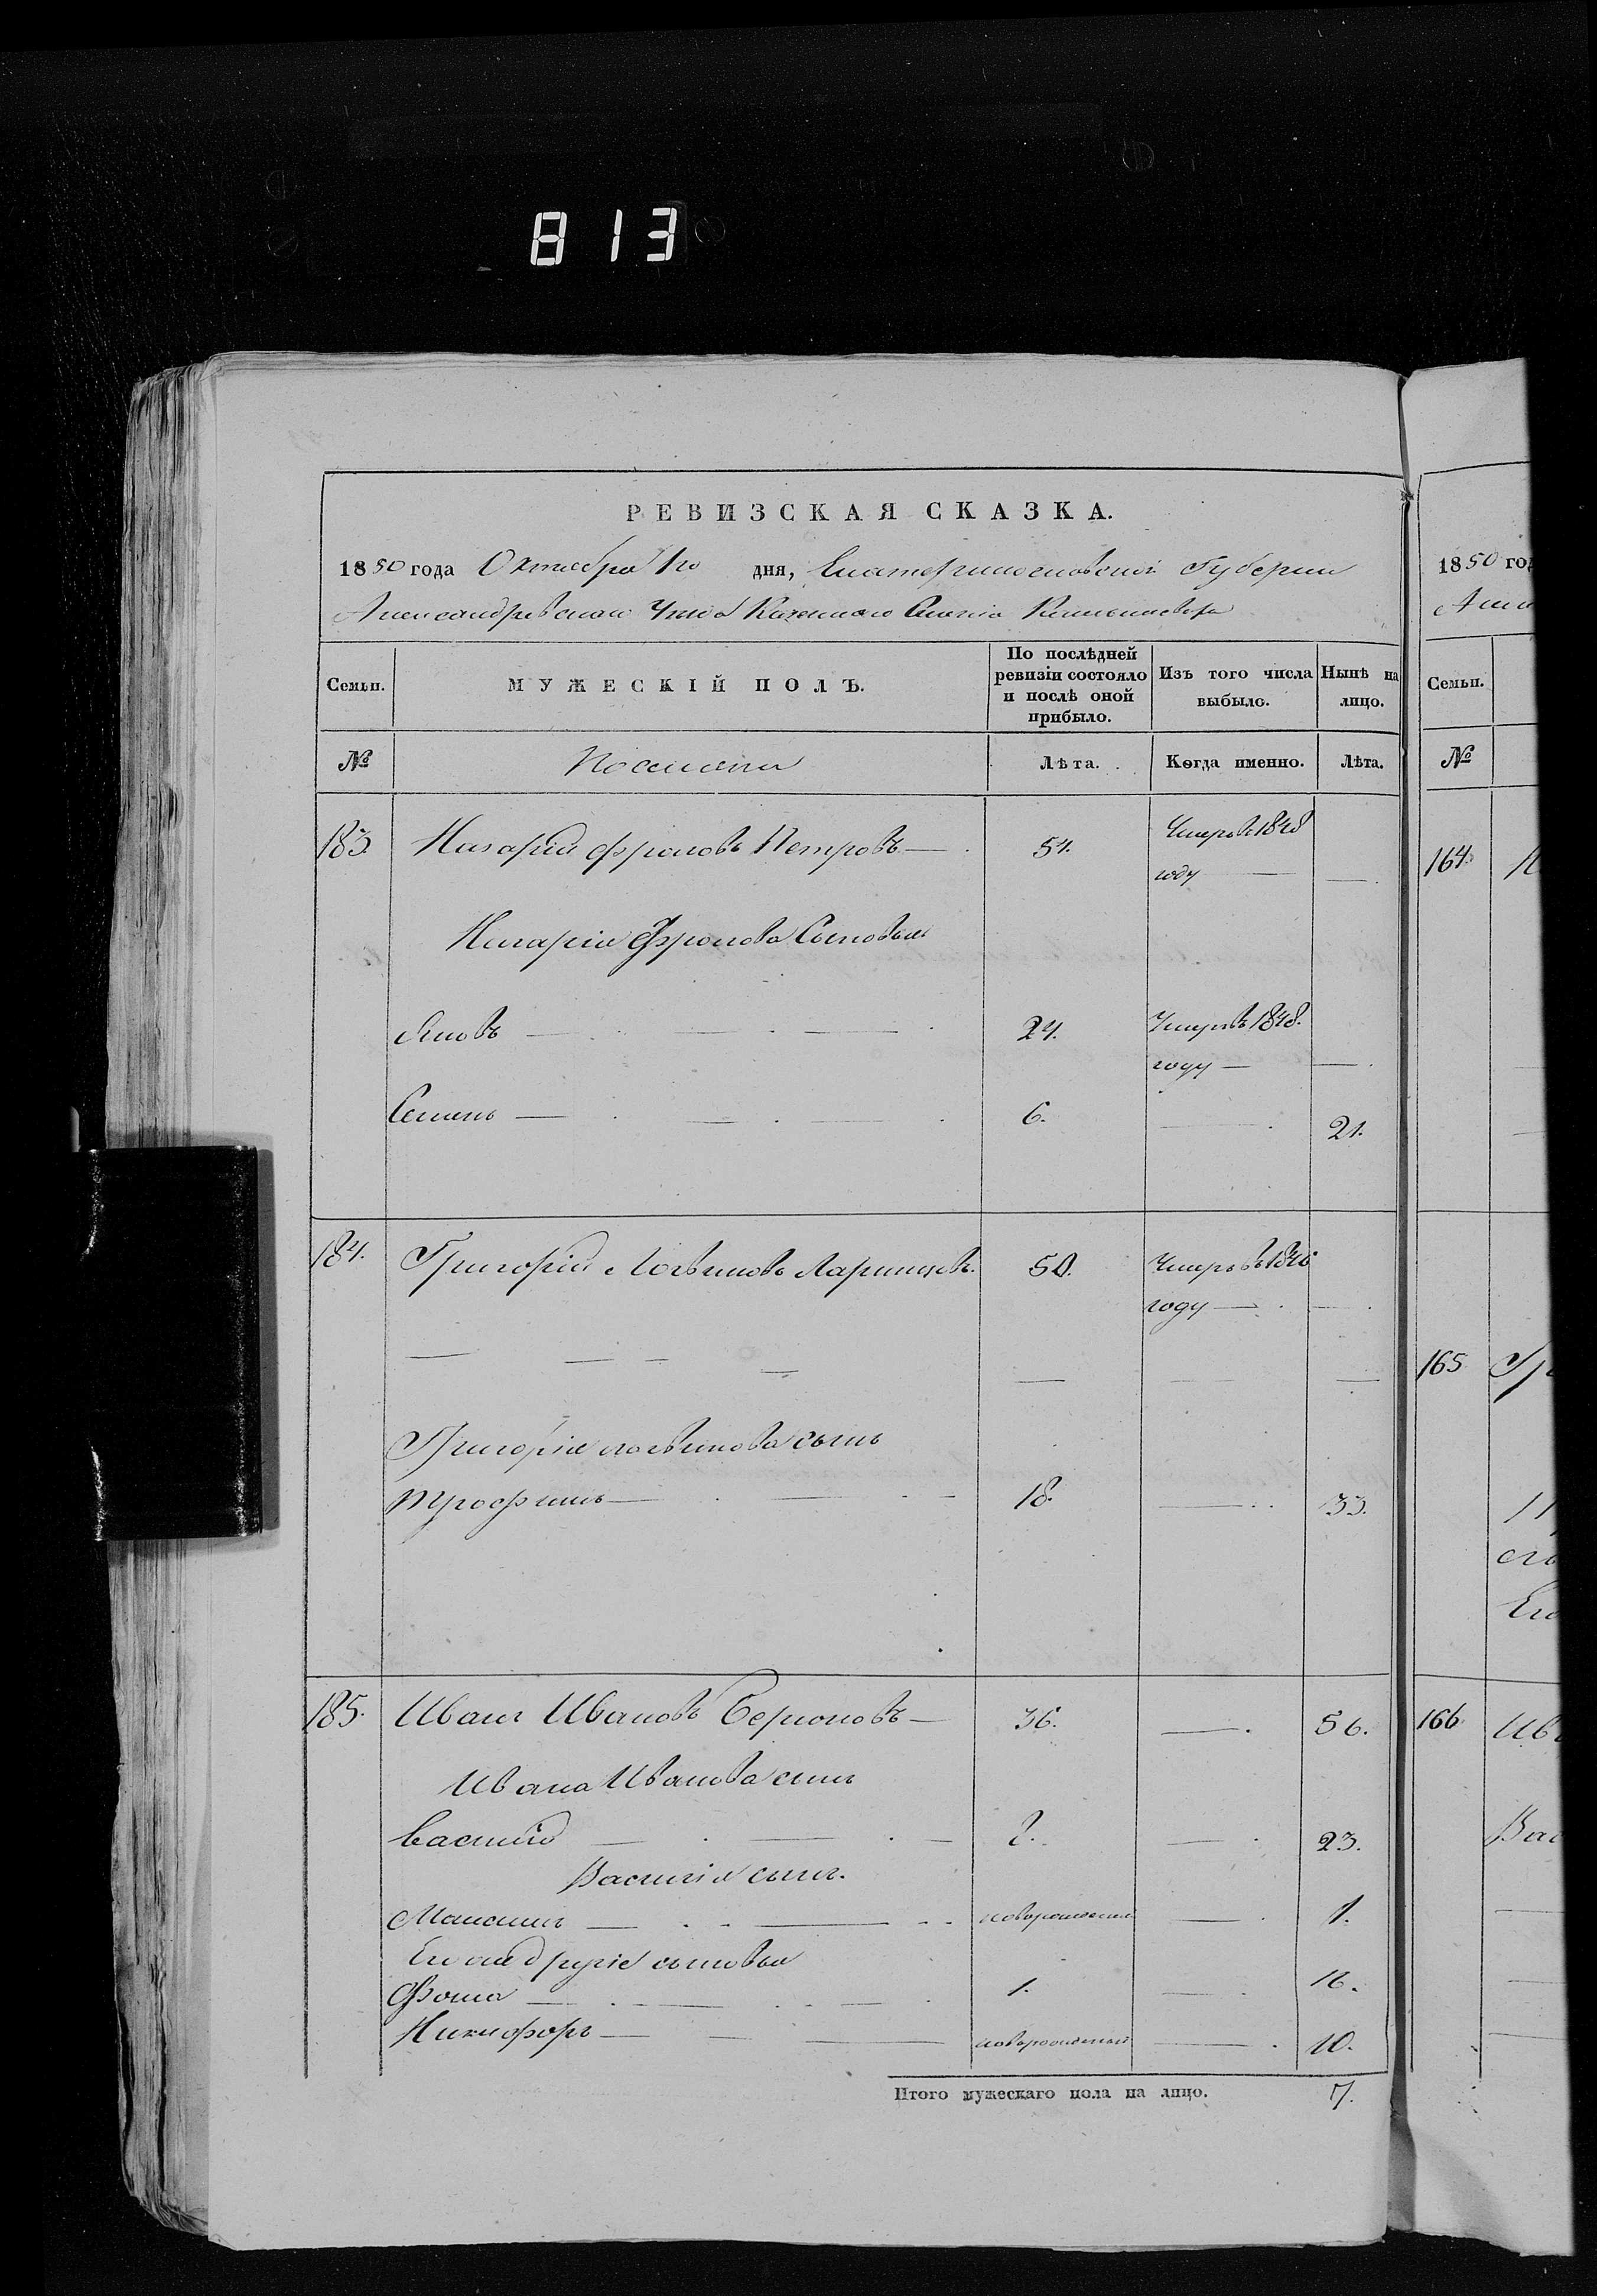 813
РЕВИЗСКАЯ СКАЗКА.
1850 года Октября 1го дня, Екатеринославской Губернии
Александровскаго Уѣзда Казеннаго Селенія
Семьи.
МУЖЕСКІЙ ПОЛЪ.
По послѣдней ревизіи состояло и послѣ оной прибыло.
Изъ того числа выбыло.
Нынѣ на лицо.
№
Поселяни
Лѣта.
Когда именно.
Лѣта.
183. Назарій Фроловъ Петровъ — 54. Умеръ в 1848
году — —
Назарія Фролова Сыновья
Яковъ — 24. Умеръ въ 1848.
году — —
Семенъ — 6. — 21.
184. Григорій Логвиновъ 50. Умеръ въ 1846
году — —
Григорія Логвинова сынъ
Трофимъ — 18. — 33.
185. Иванъ Ивановъ — 36. — 56.
Ивана Иванова сынъ
Василій — — 23.
Василія сынъ.
Максимъ — новорожденный — 1.
Его же другіе сыновья
Фома — 1. — 16.
Никифоръ — новорожденный — 10.
Итого мужескаго пола на лицо. 7.
1850 год
Семьи.
№
164.
165 Гр
166 Ив
Вас